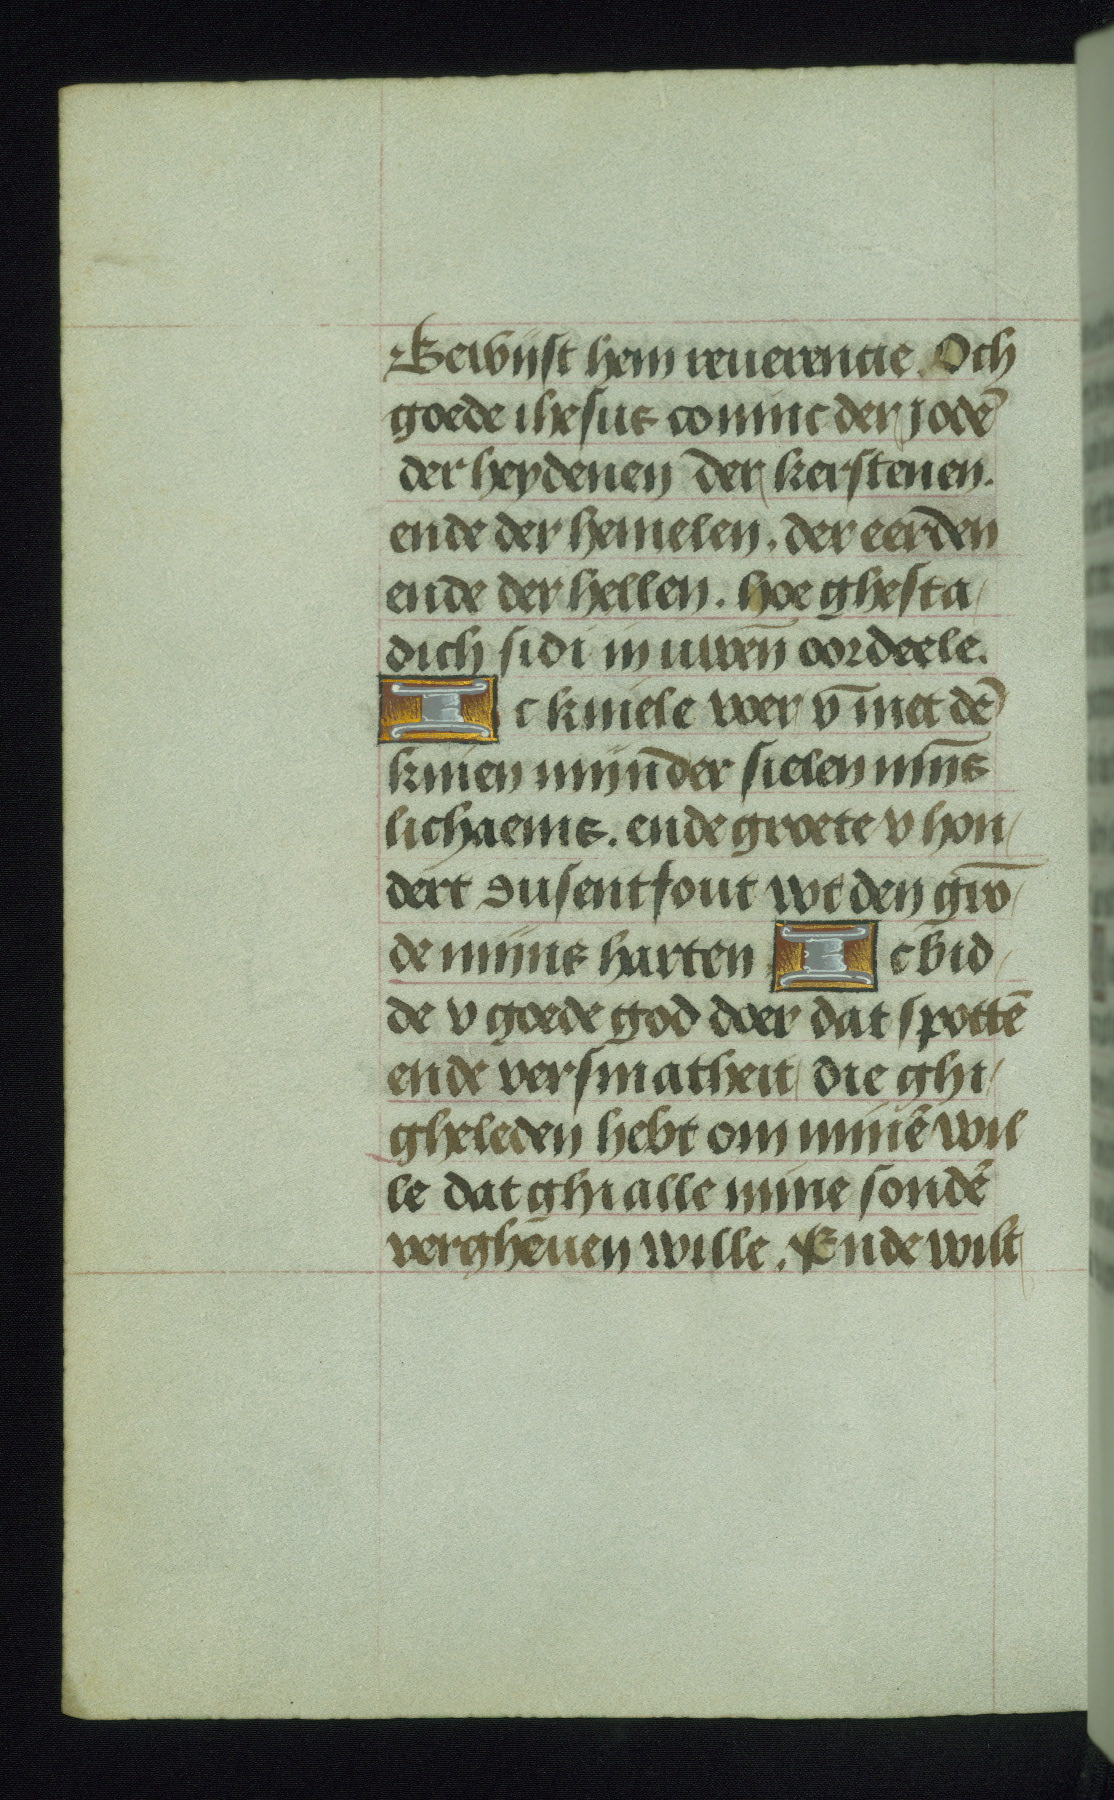 Bewijst hem reuerencie. Och
goede ihesus coninc der Jodē
der heydenen der kerstenen.
ende der hemelen. der eerden
ende der hellen. hoe ghesta/
dich sidi in uwen̄ oordeele.
Ic kniele voer v̄ met dē
knien mijnder sielen mijn̄s
lichaems. ende groete v hon/
dert dusentfout wt den grō/
de mijns harten Ic bid/
de v goede god doer dat spottē
ende versmatheit die ghi/
gheleden hebt om minē wil
le dat ghi alle mine sondē
vergheuen wille. Ende wilt